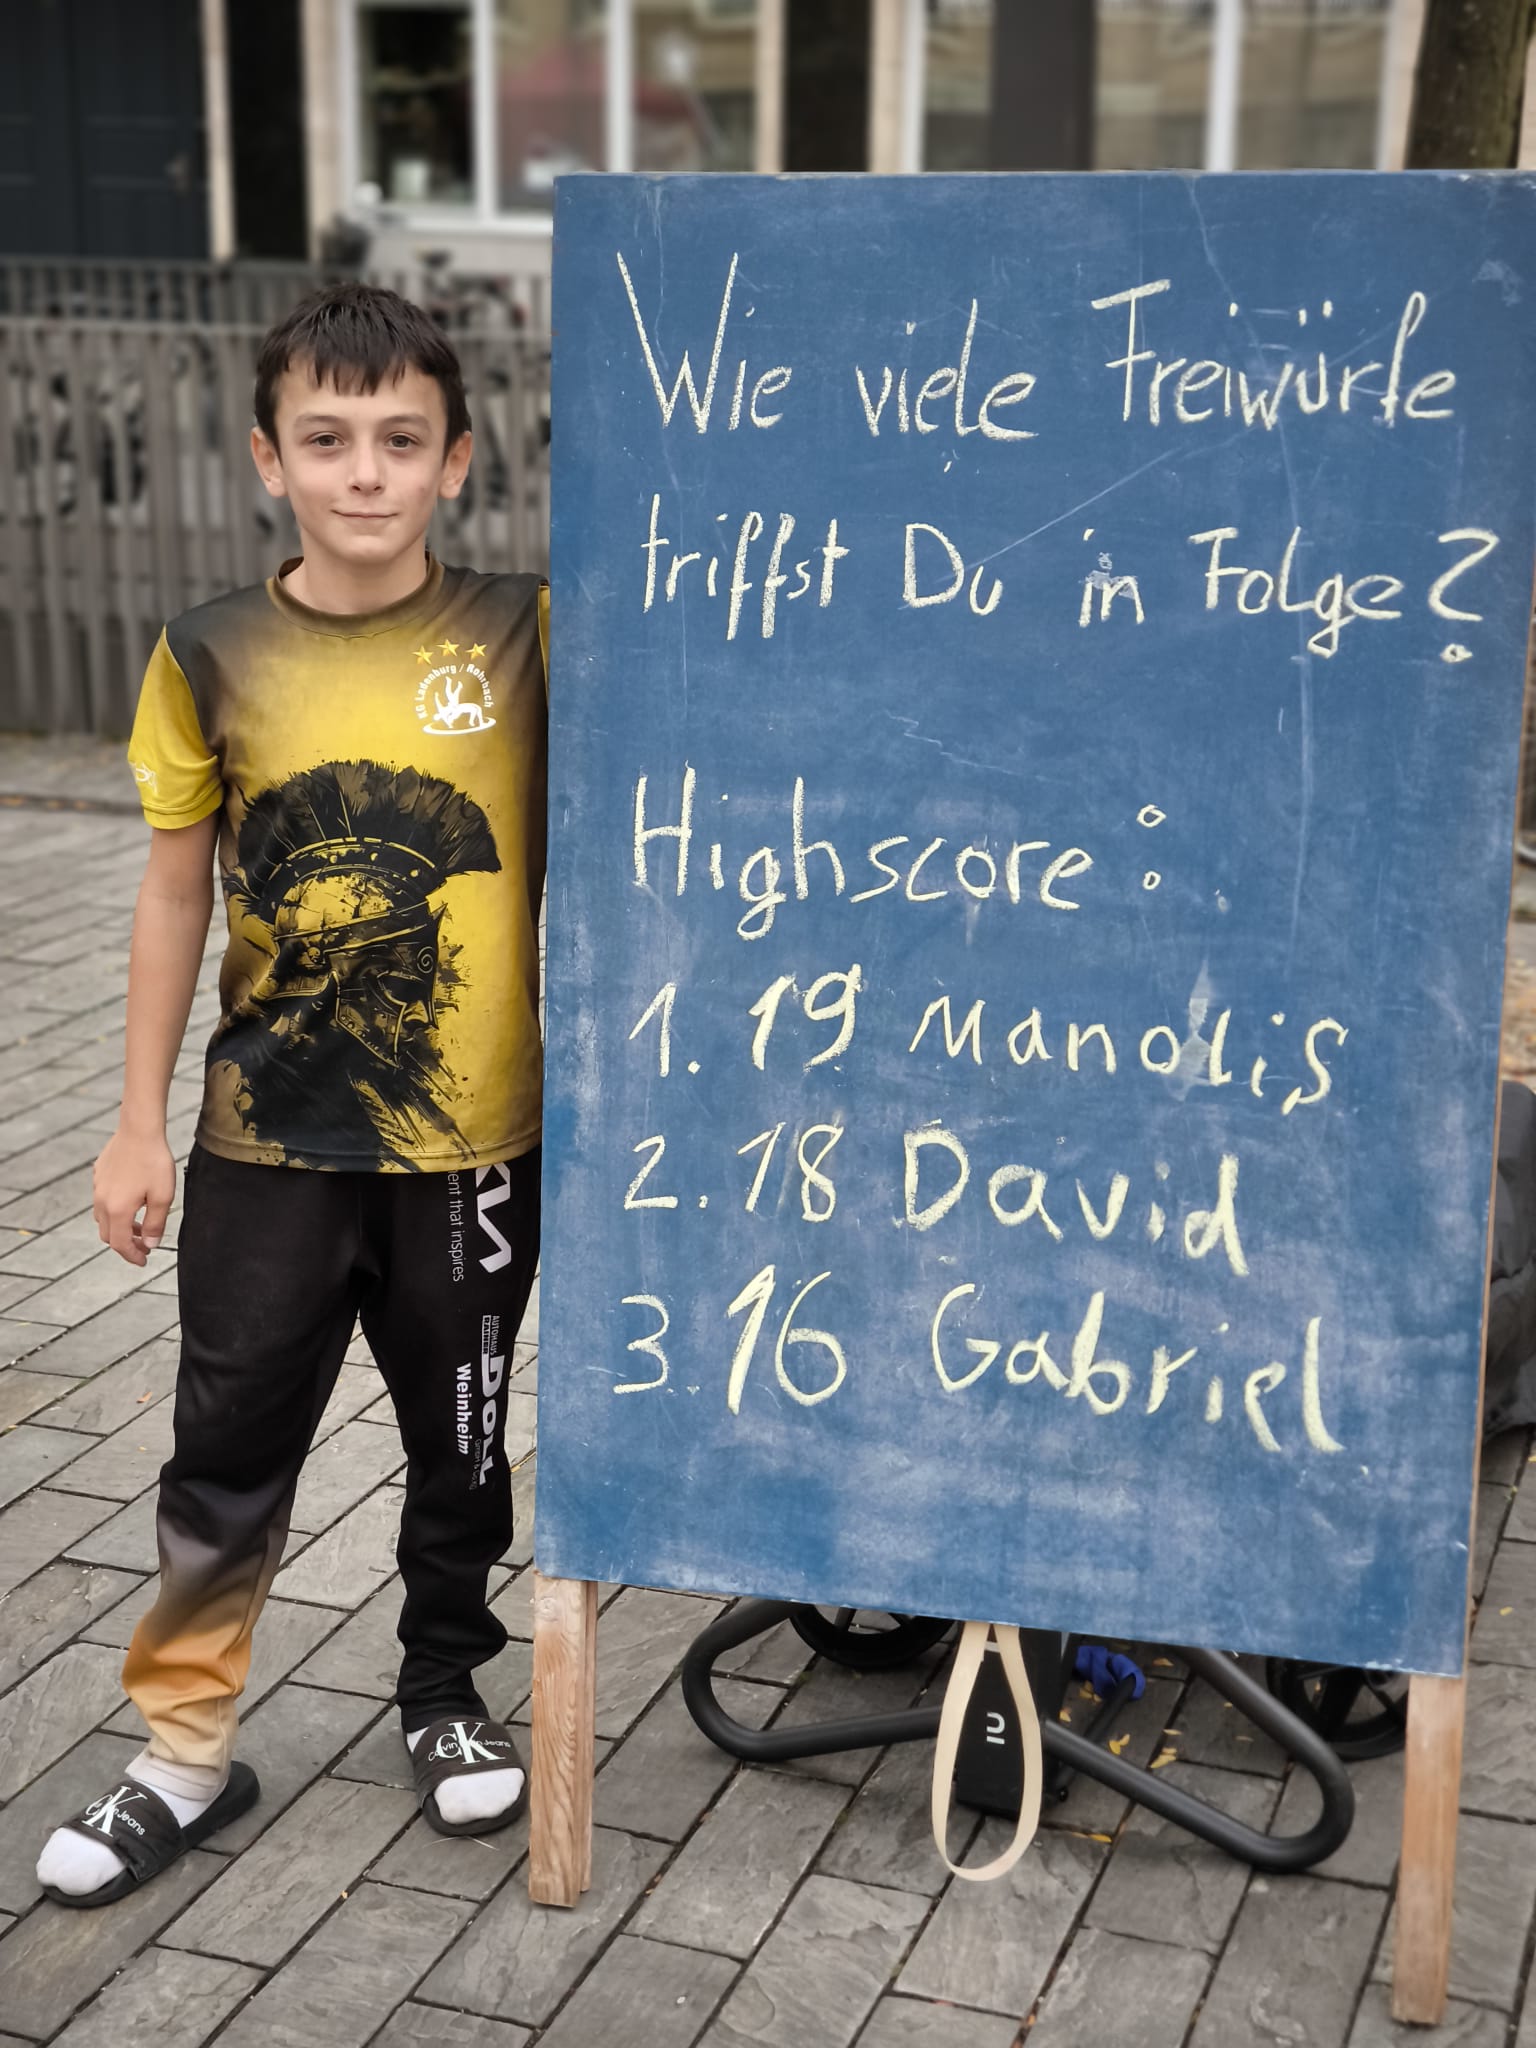 Wie viele Freiwürfe
triffst Du in Folge?
Highscore:
1. 19 Manolis
2. 18 David
3. 16 Gabriel
KG Ladenburg / Rohrbach
KIA
ent that inspires
AUTOHAUS
DOLL
Weinheim
CK
Calvin Klein Jeans
CK
Jeans